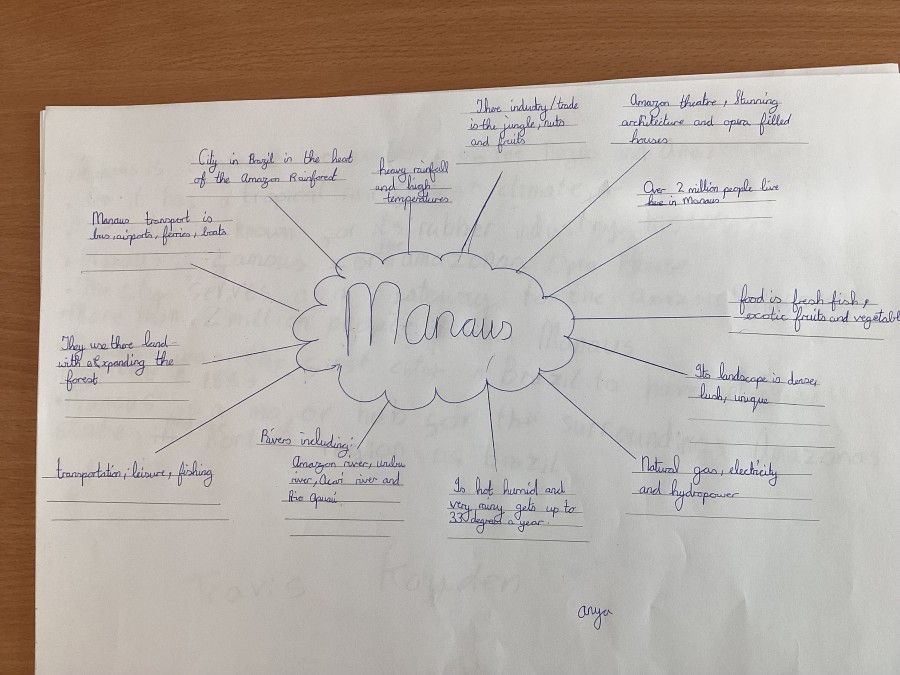 There industry/trade
is the jungle, nuts
and fruits
Amazon theatre, Stunning
architecture and opera filled
houses
City in Brazil in the heat
of the Amazon Rainforest
heavy rainfall
and high
temperatures
Over 2 million people live
in Manaus
Manaus transport is
bus, airports, ferries, boats
Manaus
food is fresh fish,
exotic fruits and vegetabl
They use there land
with expanding the
forest
Its landscape is dense,
lush, unique
transportation, leisure, fishing
Rivers including:
Amazon river, urubu
river, Acari river and
Rio
Is hot humid and
very rainy gets up to
33 degrees a year.
Natural gas, electricity
and hydropower
Taris Kayden
anya